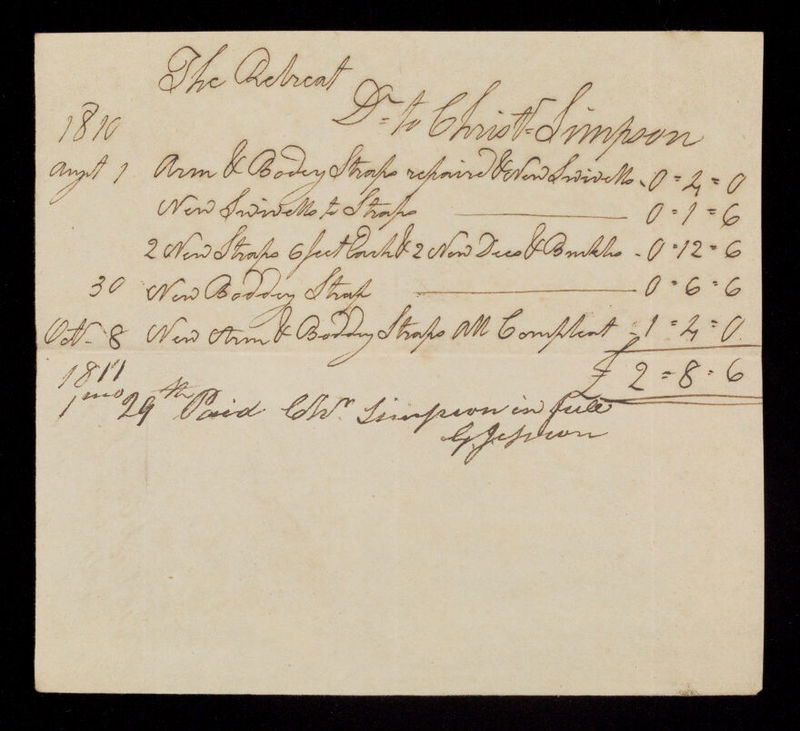 The Retreat
Dr to Christr Simpson
1810
Augst 1 Arm & Bodey Straps repaired & New Swivells - 0 = 4 = 0
New Swivells to Straps 0 = 1 = 6
2 New Straps 6 feet Each & 2 New Dees & Buckls - 0 = 12 = 6
30 New Boddey Strap 0 = 6 = 6
Octr 8 New Arm & Boddey Straps All Compleat - 1 = 4 = 0
£ 2 = 8 = 6
1811
1 mo 29th Paid Chr. Simpson in full
G Jepson